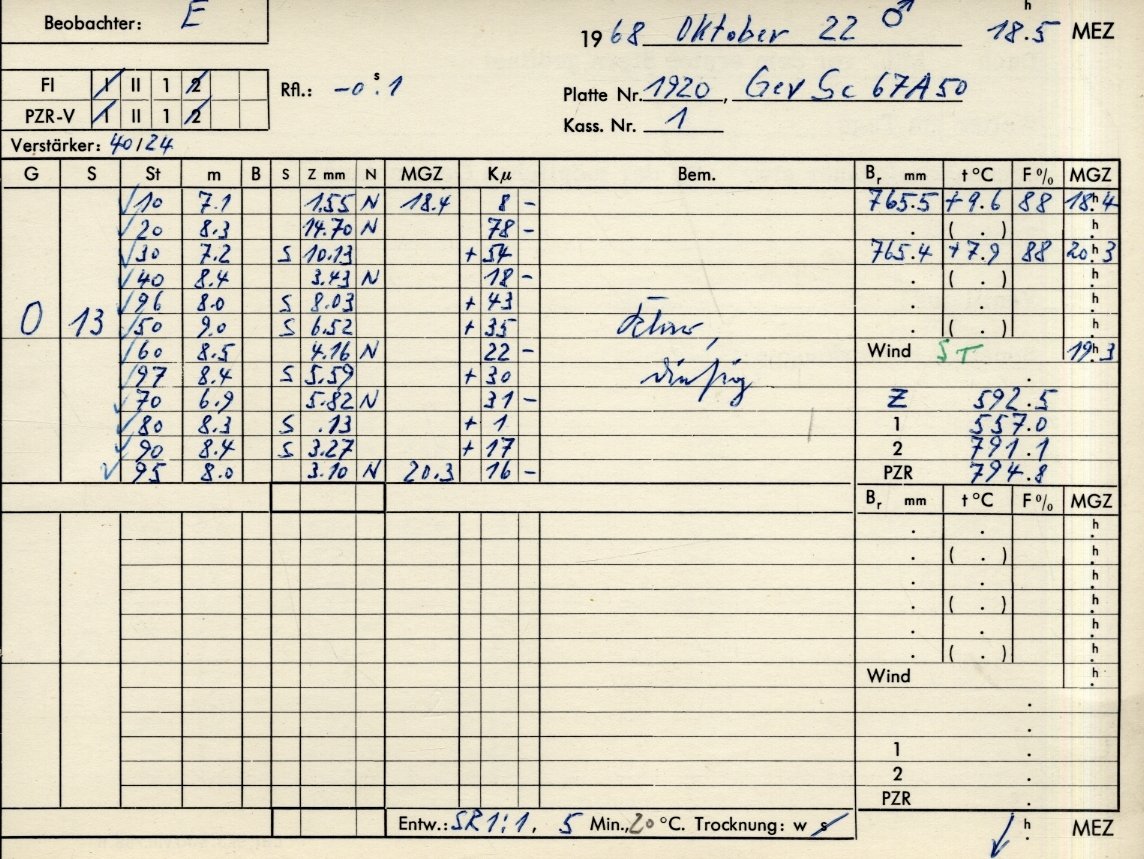 Beobachter: E
1968 Oktober 22 ♂ 18.5 h MEZ
FI I II 1 2
PZR-V I II 1 2
Rfl.: -0ˢ.1
Platte Nr. 1920, Gev Sc 67A50
Kass. Nr. 1
Verstärker: 40/24
G S St m B S Z mm N MGZ Kμ Bem. Bᵣ mm t °C F % MGZ
✓10 7.1 1.55 N 18.4 8 - 765.5 +9.6 88 18ʰ.4
✓20 8.3 14.70 N 78 - . ( . ) h.
✓30 7.2 S 10.13 + 54 765.4 +7.9 88 20ʰ.3
✓40 8.4 3.43 N 18 - . ( . ) h.
✓96 8.0 S 8.03 + 43 . . h.
0 13 ✓50 9.0 S 6.52 + 35 . ( . ) h.
✓60 8.5 4.16 N 22 - Wind ST 19ʰ.3
✓97 8.4 S 5.59 + 30 diesig .
✓70 6.9 5.82 N 31 - Z 592.5
✓80 8.3 S .13 + 1 1 557.0
✓90 8.4 S 3.27 + 17 2 791.1
✓95 8.0 3.10 N 20.3 16 - PZR 794.8
Bᵣ mm t °C F % MGZ
. . h.
. ( . ) h.
. . h.
. ( . ) h.
. . h.
. ( . ) h.
Wind h.
.
.
1 .
2 .
PZR .
Entw.: SR 1:1, 5 Min., 20 °C. Trocknung: w s
✓ h. MEZ